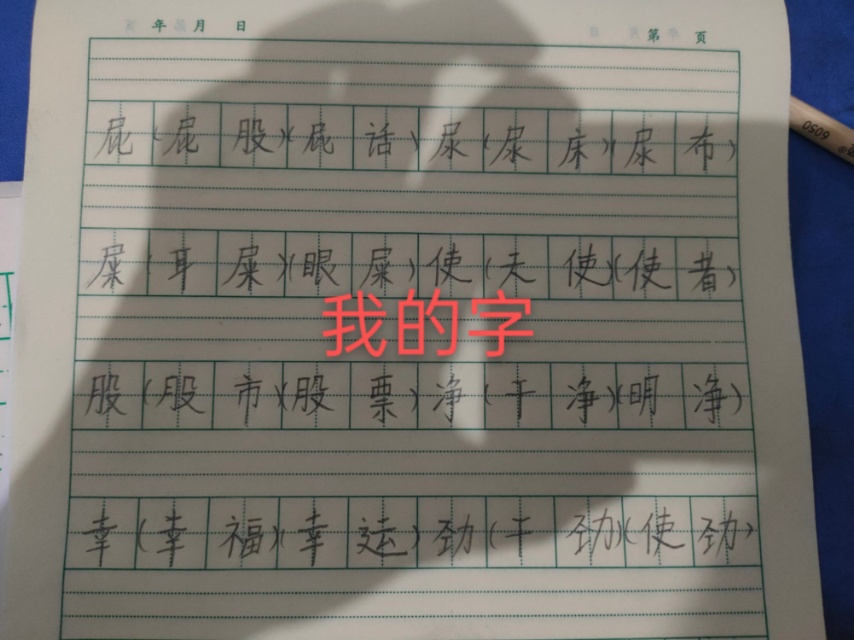 年 月 日 第 页
屁(屁股)(屁话)尿(尿床)(尿布)
屎(耳屎)(眼屎)使(天使)(使者)
我的字
股(股市)(股票)净(干净)(明净)
幸(幸福)(幸运)劲(干劲)(使劲)
6050